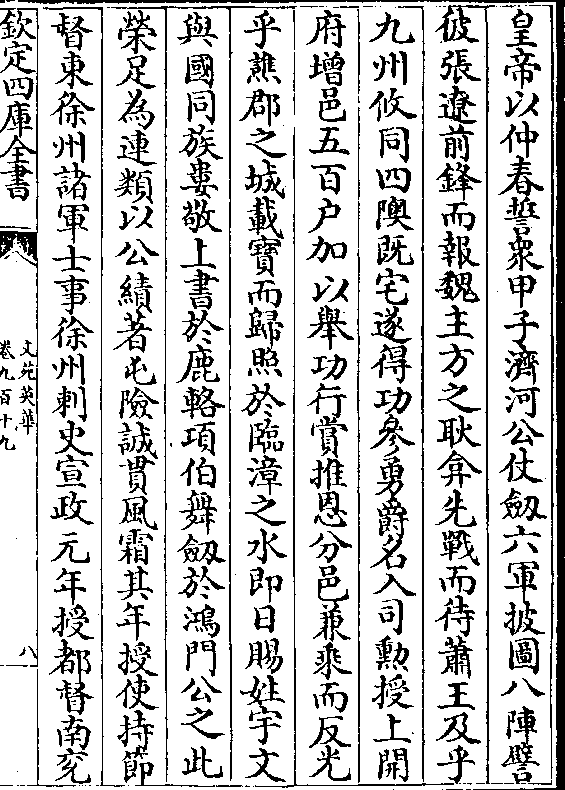 皇帝以仲春誓衆甲子濟河公仗劔六軍披圖八陣譬
彼張遼前鋒而報魏主方之耿弇先戰而待蕭王及乎
九州攸同四隩既宅遂得功參勇爵名入司勲授上開
府增邑五百户加以舉功行賞推恩分邑兼乘而反光
乎譙郡之城載寳而歸照於臨漳之水即日賜姓宇文
與國同族婁敬上書於鹿輅項伯舞劔於鴻門公之此
榮足為連類以公績著屯險誠貫風霜其年授使持節
督東徐州諸軍士事徐州刺史宣政元年授都督南兖
欽定四庫全書
文苑英華
卷九百十九
八